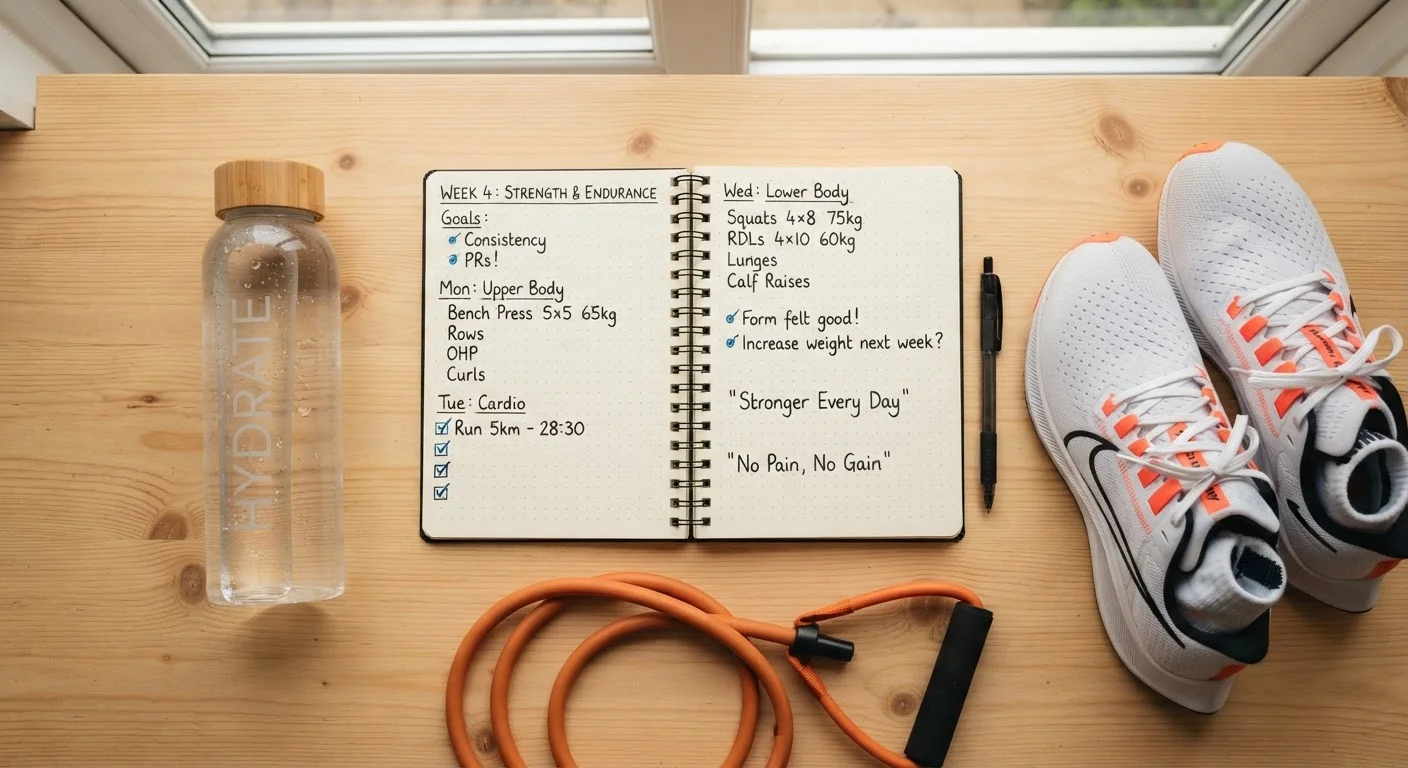 HYDRATE
WEEK 4: STRENGTH & ENDURANCE
Goals:
Consistency
PRs!
Mon: Upper Body
Bench Press 5×5 65kg
Rows
OHP
Curls
Tue: Cardio
Run 5km - 28:30
Wed: Lower Body
Squats 4×8 75kg
RDLs 4×10 60kg
Lunges
Calf Raises
Form felt good!
Increase weight next week?
"Stronger Every Day"
"No Pain, No Gain"